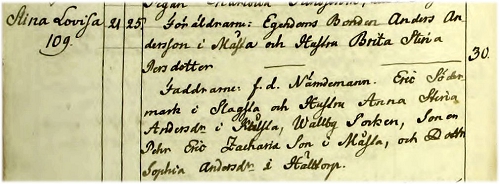 Stina Lovisa 21 25 Föräldrarne: Egendoms Bonden Anders An
109. dersson i Måssla och Hustru Brita Stina
Persdotter 30.
Faddrarne: f. d. Nämdemann. Eric Söder
mark i Slagsla och Hustru Anna Stina
Andersdr i Wallby Socken, Sonen
Pehr Eric Zacharia Son i Måssla, och Dottr
Sophia Andersdr i Hälltorp.